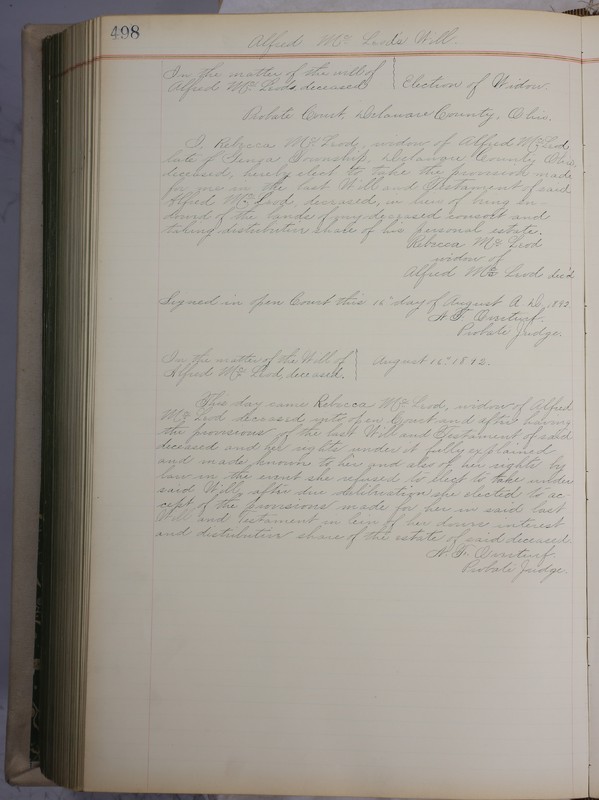 498
Alfred Mc Leod's Will.
In the matter of the will of
Alfred Mc Leod, deceased
Election of Widow.
Probate Court, Delaware County, Ohio.
I, Rebecca Mc Leod, widow of Alfred Mc Leod,
late of Township, Delaware County Ohio,
deceased, hereby elect to take the provision made
for me in the last Will and Testament of said
Alfred Mc Leod, deceased, in lieu of being en-
dowed of the lands of my deceased consort and
taking distributive share of his personal estate.
Rebecca Mc Leod
widow of
Alfred Mc Leod dec'd
Signed in open Court this 16" day of August A. D. 1892
Probate Judge.
In the matter of the Will of
Alfred Mc Leod, deceased.
August 16" 1892.
This day came Rebecca Mc Leod, widow of Alfred
Mc Leod deceased into open Court and after having
the provisions of the last Will and Testament of said
deceased and her rights under it fully explained
and made known to her and also of her rights by
law in the event she refused to elect to take under
said Will, after due deliberation she elected to ac-
cept of the provisions made for her in said last
Will and Testament in lieu of her dower interest
and distributive share of the estate of said deceased
Probate Judge.